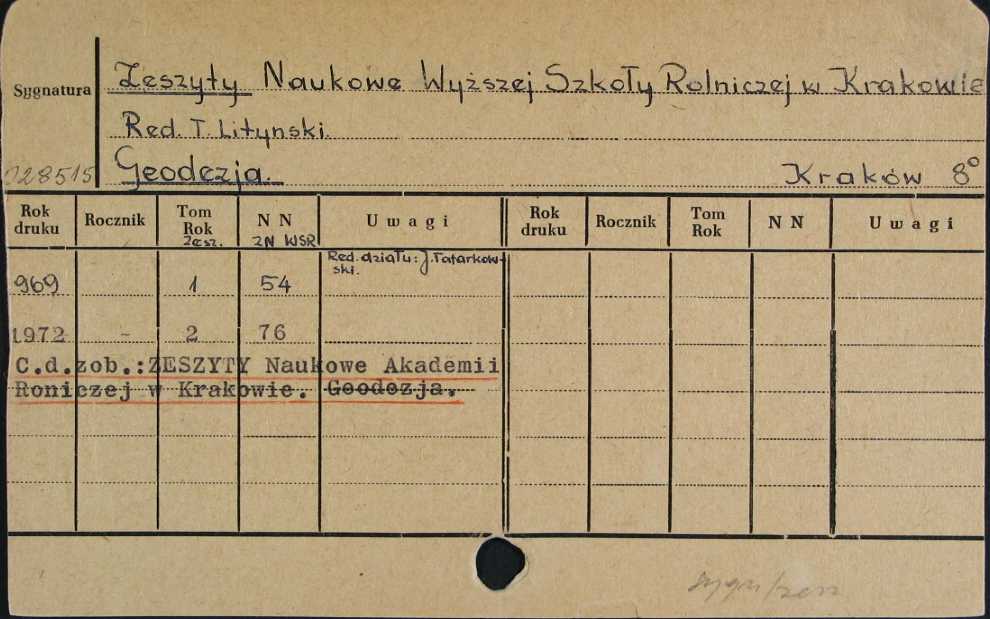 Sygnatura
Zeszyty Naukowe Wyższej Szkoły Rolniczej w Krakowie
Red. T. Litynski.
028515 Geodezja. Kraków 8°
Rok druku Rocznik Tom Rok Zesz. N N ZN WSR Uwagi Rok druku Rocznik Tom Rok N N Uwagi
Red. działu: J. Tatarkow-
ski.
969 1 54
1972 - 2 76
C.d.zob.:ZESZYTY Naukowe Akademii
Roniczej w Krakowie. Geodezja.